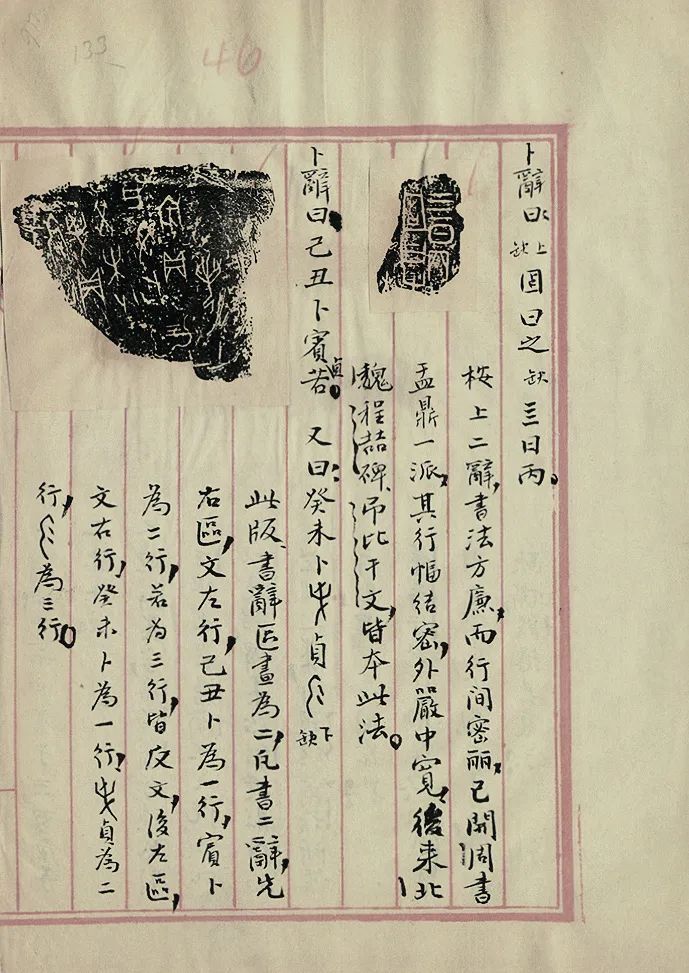 133
46
卜辭曰：上缺 固曰之 缺 三日丙。
桉上二辭，書法方廉，兩行間密麗，已開周書
盂鼎一派，其行幅結密，外嚴中寬，後来北
魏程喆碑、吊比干文，皆本此法。
卜辭曰：己丑卜賓貞若。又曰：癸未卜 貞 下缺
此版書辭區畫為二，凡書二辭，先
右區，文左行，己丑卜為一行，賓卜
為二行，若为三行，皆反文，後左區，
文右行，癸未卜為一行，貞為二
行，為三行。